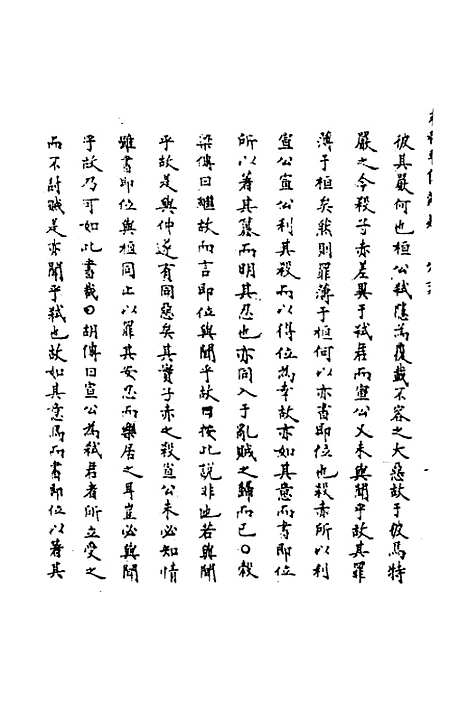 彼其嚴何也桓公弑隱為覆載不容之大惡故于彼焉特
嚴之今殺子赤差異于弑君而宣公又未與聞乎故其罪
薄于桓矣然則罪薄于桓何以亦書即位也殺赤所以利
宣公宣公利其殺而以得位為幸故亦如其意而書即位
所以著其篡而明其忍也亦同入于亂賊之歸而已○穀
梁傳曰繼故而言即位與聞乎故曰按此說非也若與聞
乎故是與仲遂有同惡矣其實子赤之殺宣公未必知情
雖書即位與桓同止以罪其安忍而樂居之耳豈必與聞
乎故乃可如此書哉○胡傳曰宣公為弑君者所立受之
而不討賊是亦聞乎弑也故如其意焉而書即位以著其